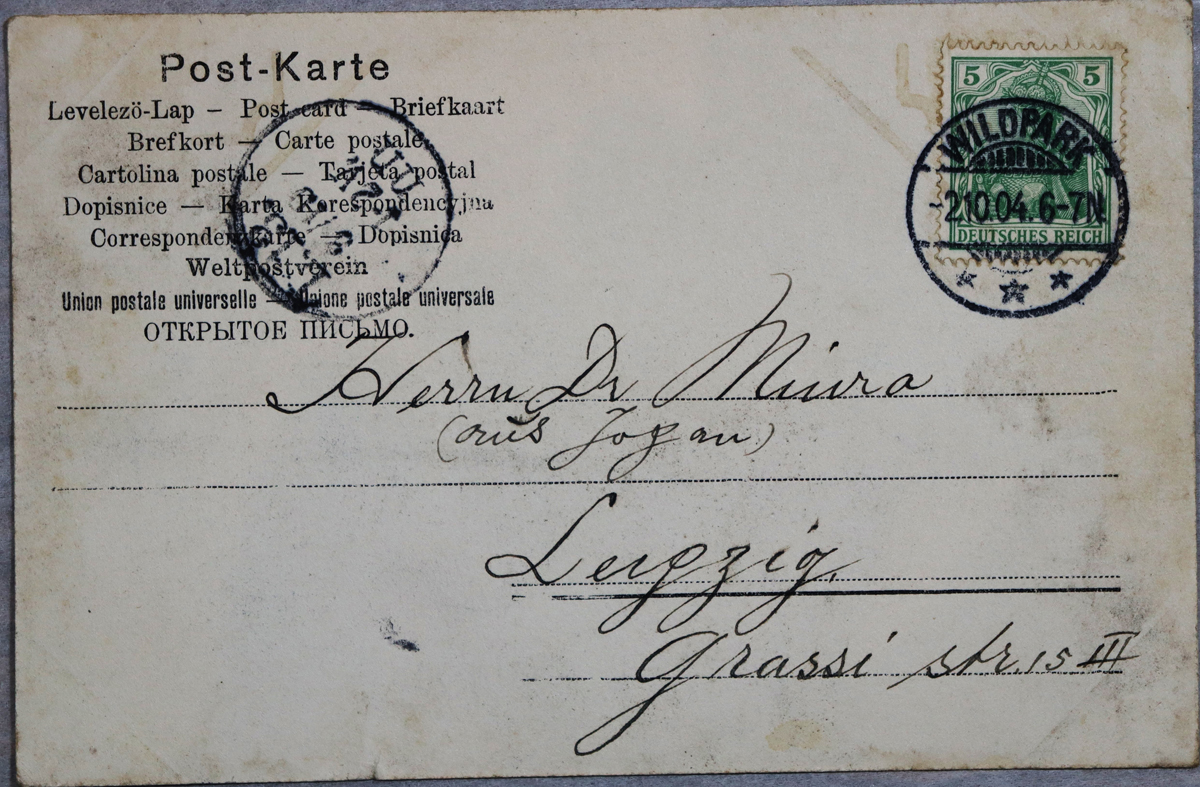 Post-Karte
Levelezö-Lap — Post-card — Briefkaart
Brefkort — Carte postale
Cartolina postale — Tarjeta postal
Dopisnice — Karta Korespondencyjna
Correspondenzkarte — Dopisnica
Weltpostverein
Union postale universelle — Unione postale universale
ОТКРЫТОЕ ПИСЬМО.
5 5
WILDPARK
2.10.04. 6-7N
DEUTSCHES REICH
Herrn Dr Miura
(aus Jogan)
Leipzig.
Grassi str. 15 III